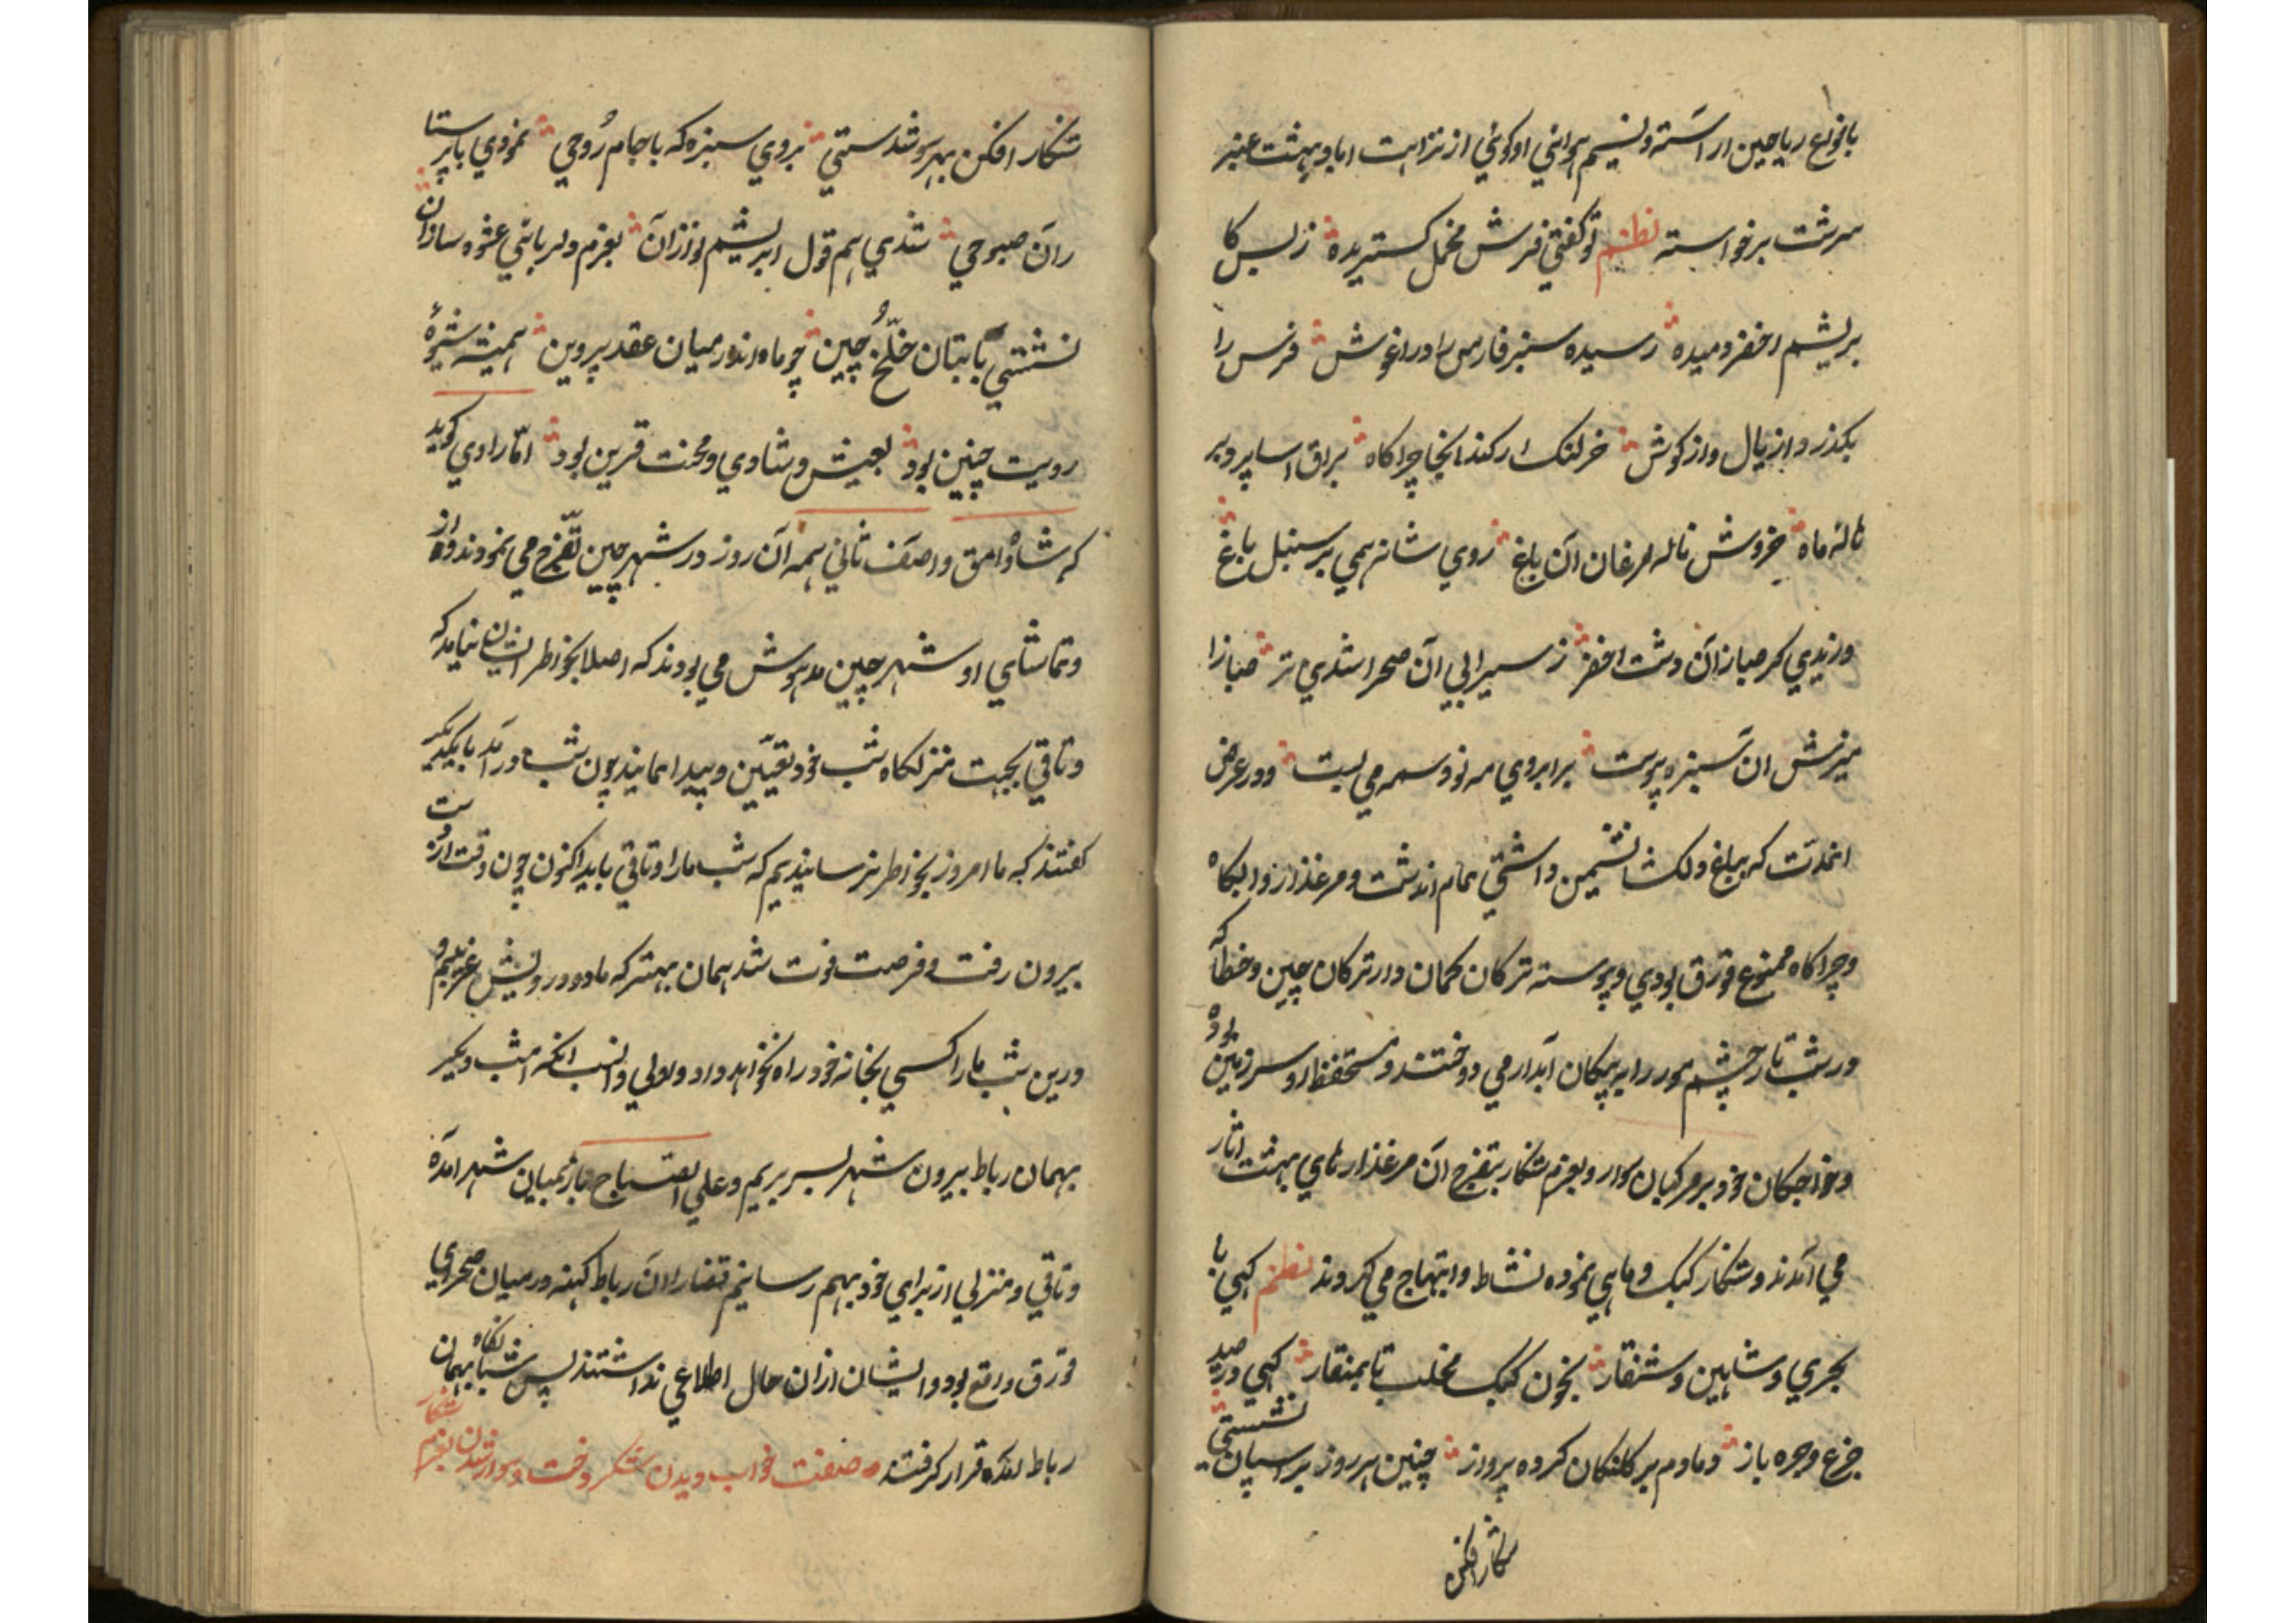 بانواع ریاحین اراسته و نسیم هوائی او کوئی از نزاهت اباد بهشت عنبر
سرشت برخواسته نظم تو کفتی فرش مخمل کستریده ز بس کا
بریشم اخضر دمیده رسیده سبزه فارس را در اغوش فرس را
بکذرد از یال و از کوش خر لنک ار کند انجا چراکاه براق اسا پرد بر
تا له ماه خروش ناله مرغان ان باغ زدی شانه همی بر سنبل باغ
وزیدی کر صبا زان دشت اخضر ز سیرابی ان صحرا شدی تر صبا زا
میزش ان سبزه پوست بر ابروی مه نو وسمه می بست و در عرض
انمدت که بباغ دلکشا نشیمن داشتی تمام اندشت و مرغذار و البکاه
و چراکاه ممنوع و قرق بودی و پیوسته ترکان کمان دار ترکان چین و خطا که
در شب تار چشم مور را به پیکان ابدار می دوختند و مستحفظ ان سرزمین بوده
و خواجکان خود بر مرکبان سوار و بعزم شکار بتفرج ان مرغذار های بهشت اثار
می امدند و شکار کبک و ماهی نموده نشاط و ابتهاج می کردند نظم کهی با
بحری و شاهین و شنقار بخون کبک مخلب تا بمنقار کهی در صید
جرغ و جره باز دمادم بر کلنکان کرده پرواز چنین هر روز بر اسپان نشستی
شکار افکن
شکار افکن بهر سو شدستی بروی سبزه که با جام روحی نمودی با پرستا
ران صبوحی شدی هم قول ابریشم نوازان بعزم دلربائی عشوه سازان
نشستی با بتان خلخ و چین چو ماه اندر میان عقد پروین همیشه شیوه
رویت چنین بود بعیش و شادی و محنت قرین بود اما راوی کوید
که شاه وامق و اصف ثانی همه ان روز در شهر چین تفرج می نمودند و از
و تماشای او شهر چین مدهوش می بودند که اصلا بخواطر ایشان نیامد که
وثاقی بجهت منزلکاه شب خود تعیین و پیدا نمایند چون شب در امد با یکدیکر
کفتند که ما امروز بخواطر نرسانیدیم که شب ما را وثاقی باید اکنون چون وقت از دست
بیرون رفت و فرصت فوت شد همان بهتر که ما دو درویش غریبیم و
درین شب ما را کسی بخانه خود راه نخواهد داد و اولی و انسب انکه امشب دیکر
بهمان رباط بیرون شهر بسر بریم و علی الصباح باز بمیان شهر امده
وثاقی و منزلی از برای خود بهم رسانیم قضا را ان رباط کهنه در میان صحرای
قرق واقع بود و ایشان از ان حال اطلاعی نداشتند پس شبانکاه بهمان
رباط امده قرار کرفتند صفت خواب دیدن شکر دخت و سوار شدن بعزم شکار